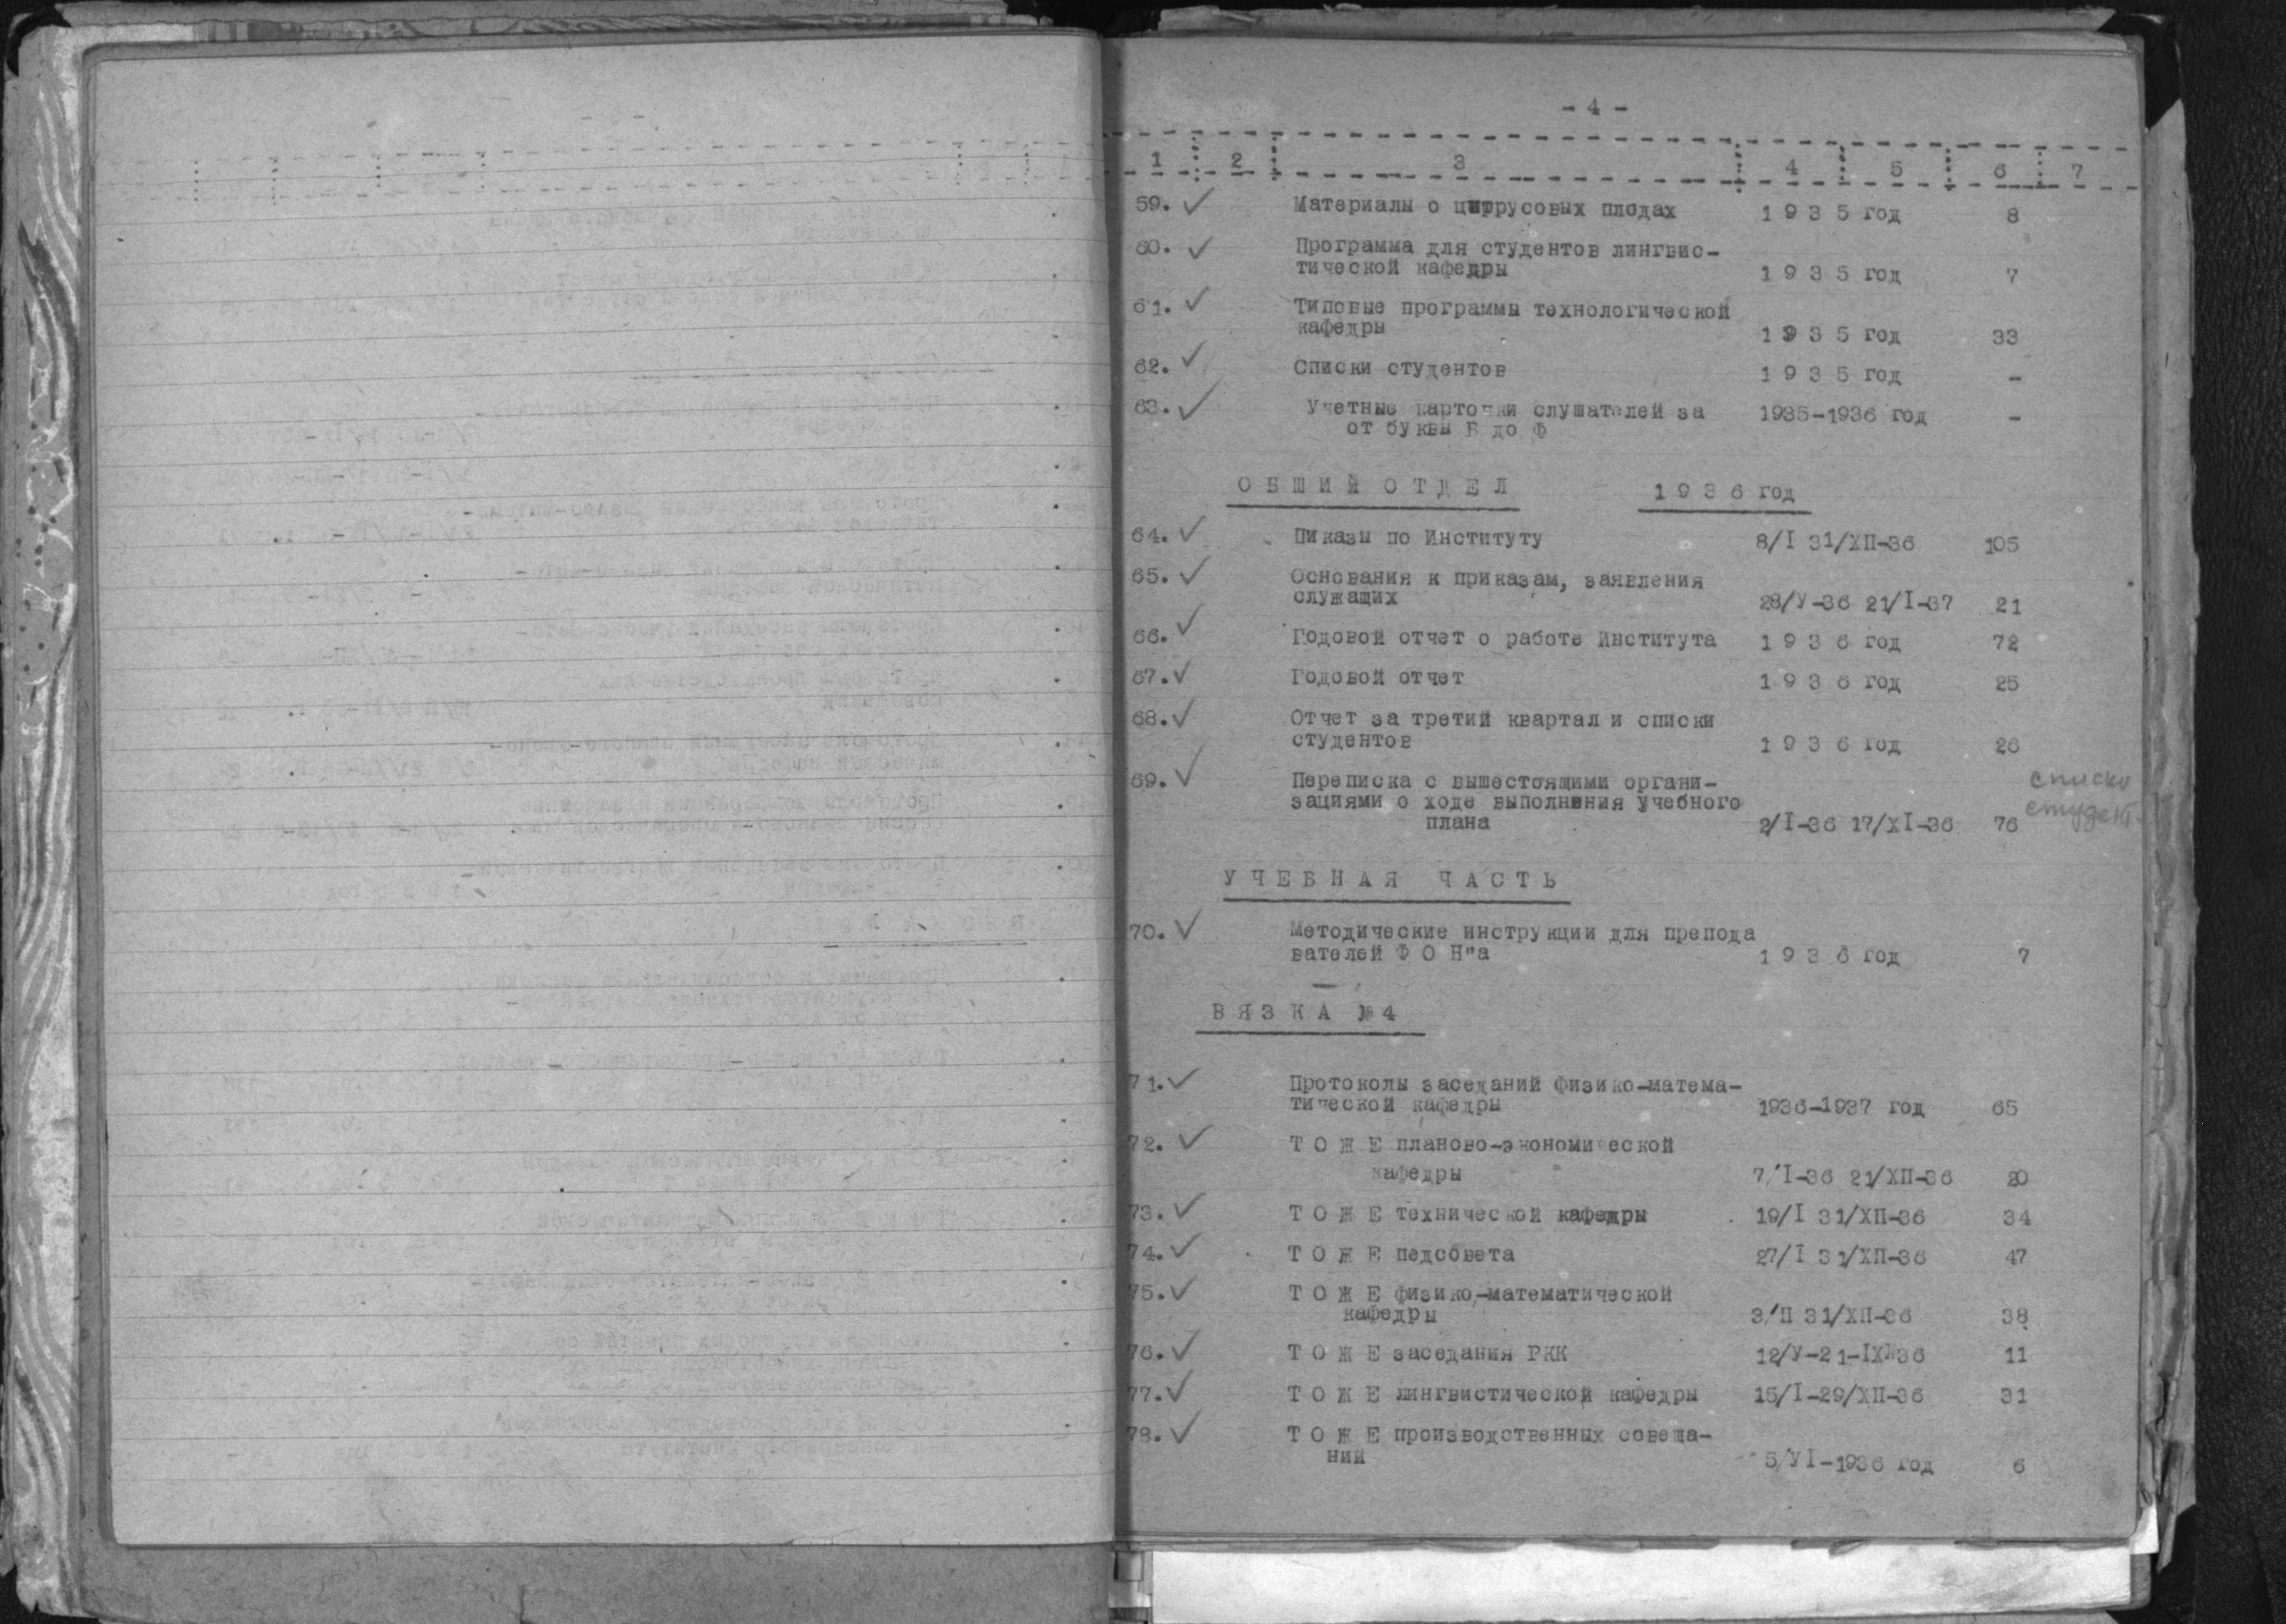 - 4 -
1 2 3 4 5 6 7
59. ✓ Материалы о цитрусовых плодах 1 9 3 5 год 8
60. ✓ Программа для студентов лингвис-
тической кафедры 1 9 3 5 год 7
61. ✓ Типовые программы технологической
кафедры 1 9 3 5 год 33
62. ✓ Списки студентов 1 9 3 5 год -
63. ✓ Учетные карточки слушателей за 1935-1936 год -
от буквы Б до Ф
О Б Щ И Й О Т Д Е Л 1 9 3 6 год
64. ✓ Пиказы по Институту 8/I 31/ХП-36 105
65. ✓ Основания к приказам, заявления
служащих 28/У-36 21/I-37 21
66. ✓ Годовой отчет о работе Института 1 9 3 6 год 72
67. ✓ Годовой отчет 1 9 3 6 год 25
68. ✓ Отчет за третий квартал и списки
студентов 1 9 3 6 год 26
69. ✓ Переписка с вышестоящими органи-
зациями о ходе выполнения учебного
плана 2/I-36 17/ХI-36 76
списки
студент.
У Ч Е Б Н А Я Ч А С Т Ь
70. ✓ Методические инструкции для препода
вателей Ф О Н"а 1 9 3 6 год 7
В Я З К А №4
71. ✓ Протоколы заседаний физико-матема-
тической кафедры 1936-1937 год 65
72. ✓ Т О Ж Е планово-экономической
кафедры 7/I-36 21/ХП-36 20
73. ✓ Т О Ж Е технической кафедры 19/I 31/ХП-36 34
74. ✓ Т О Ж Е педсовета 27/I 31/ХП-36 47
75. ✓ Т О Ж Е физико-математической
кафедры 3/П 31/ХП-36 38
76. ✓ Т О Ж Е заседания РКК 12/У-21-IХ-36 11
77. ✓ Т О Ж Е лингвистической кафедры 15/I-29/ХП-36 31
78. ✓ Т О Ж Е производственных совеща-
ний 5/УI-1936 год 6